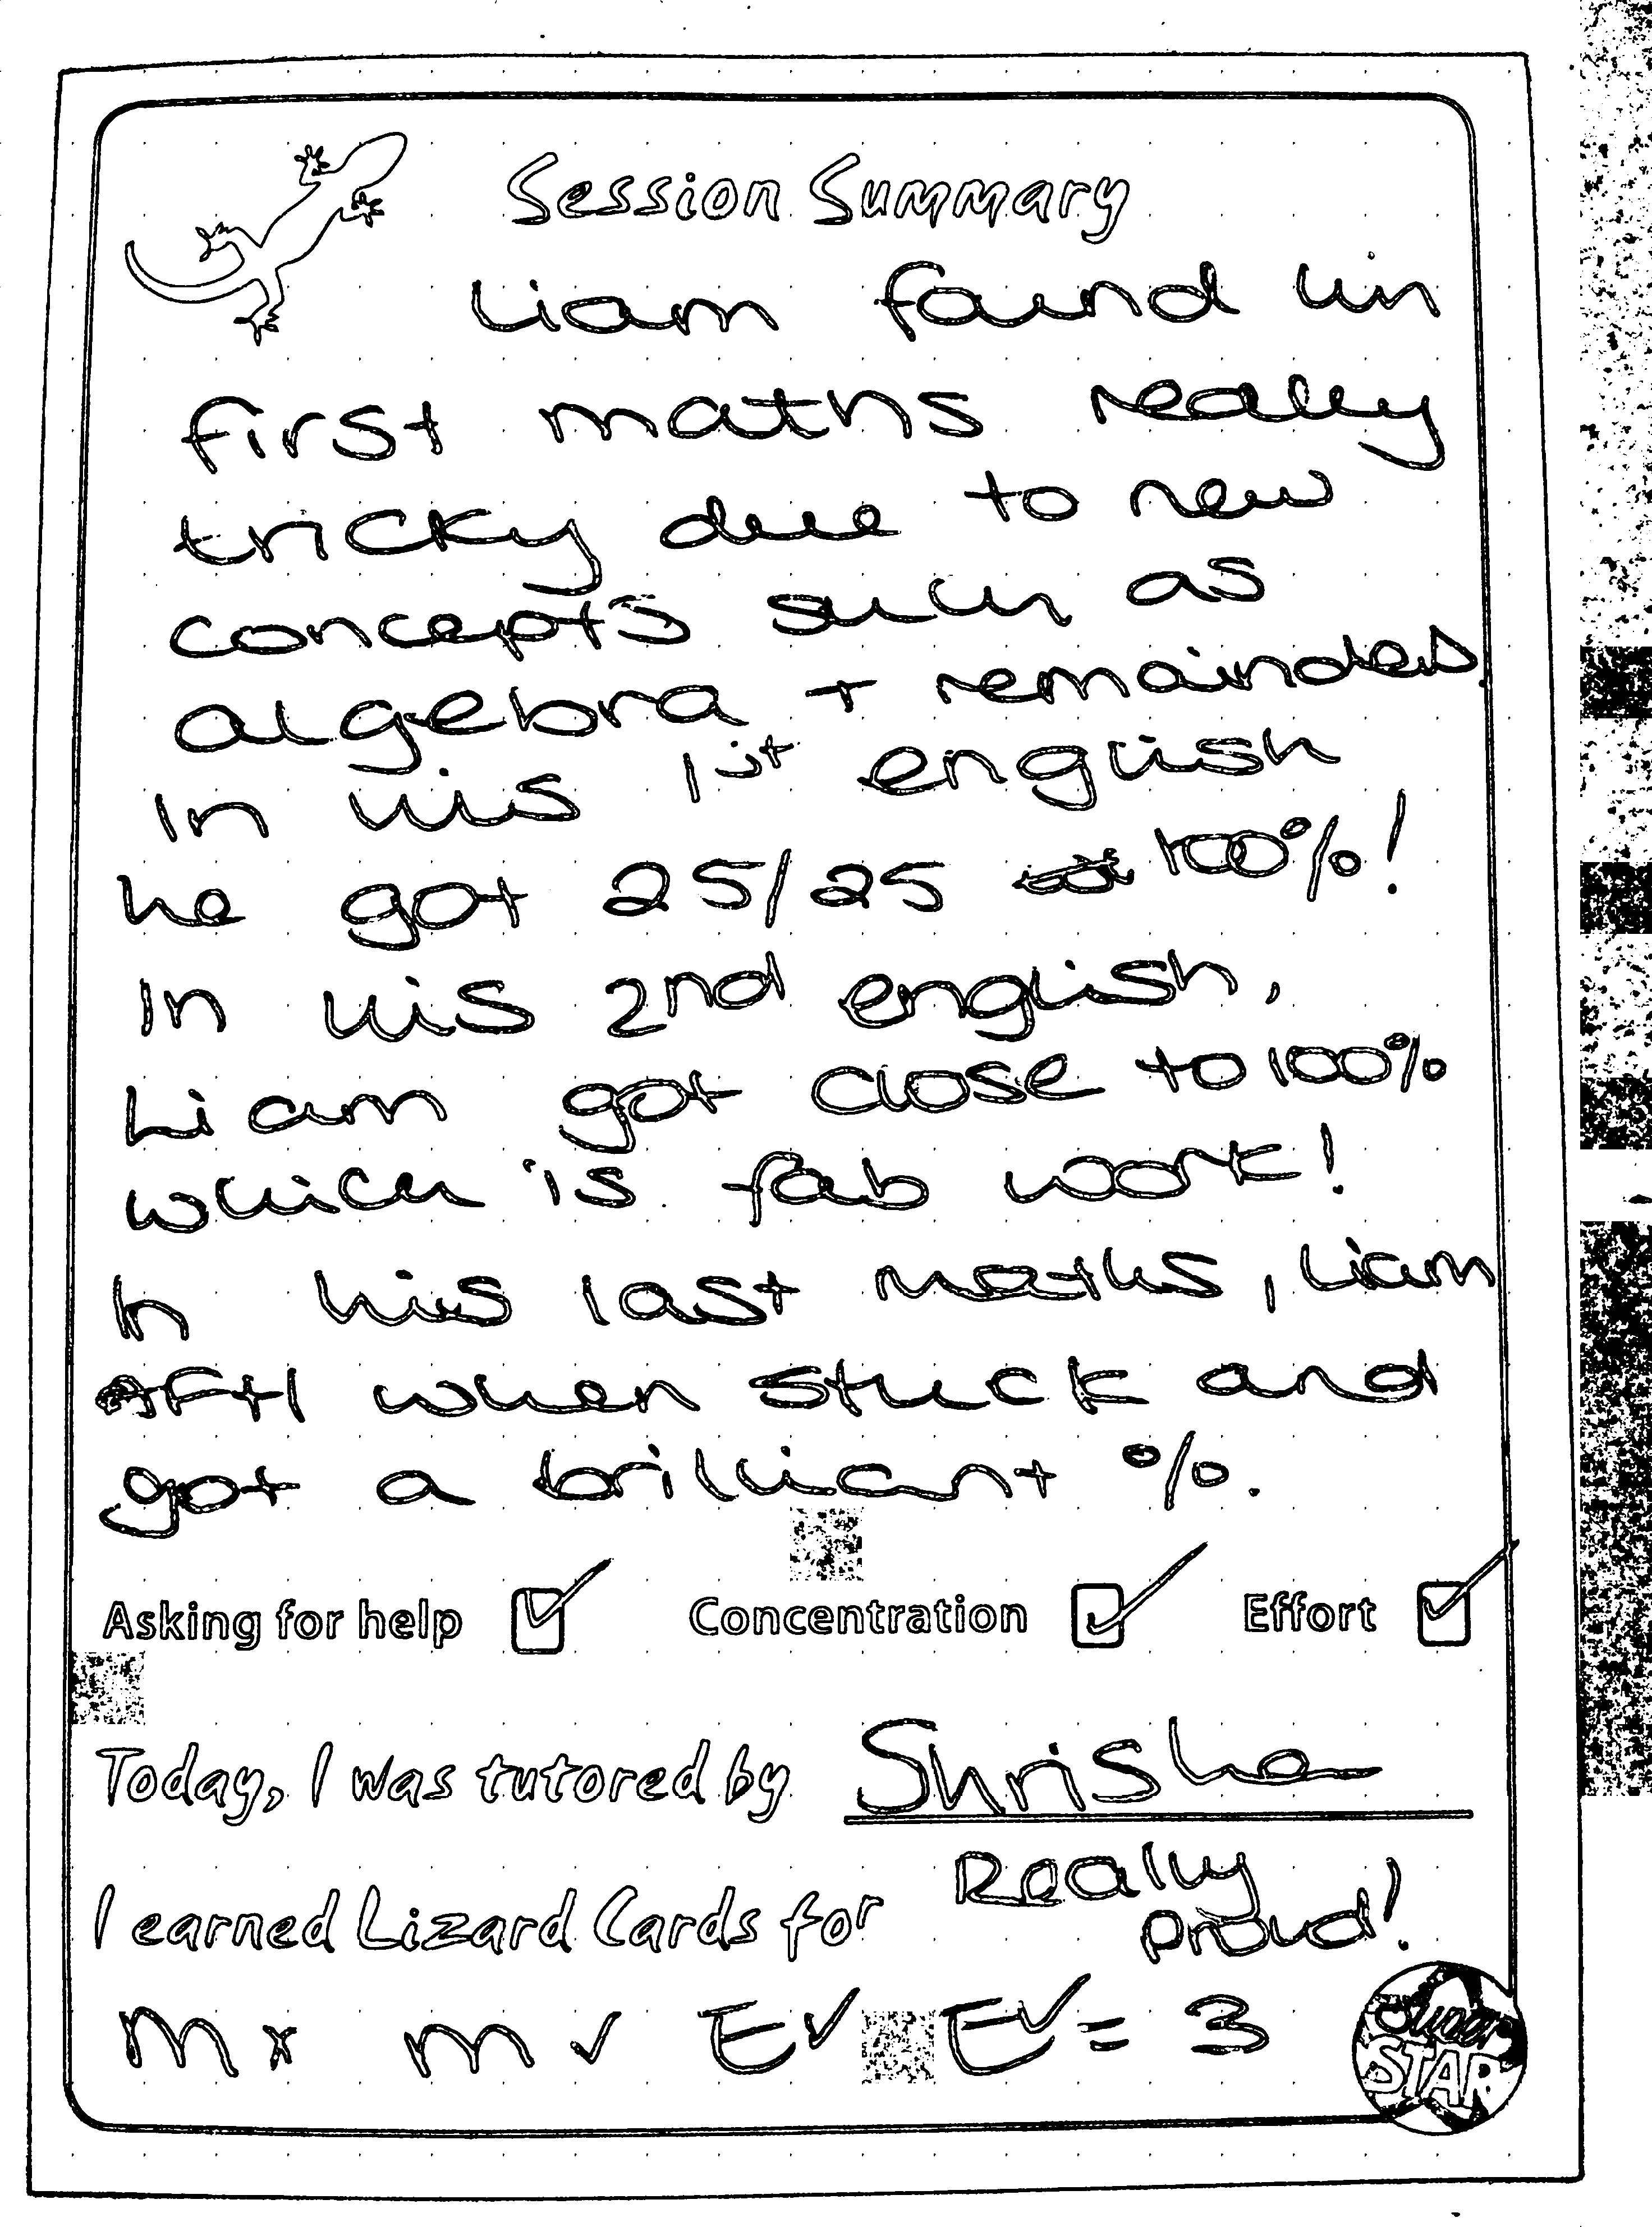 Session Summary
Liam found his
first maths really
tricky due to new
concepts such as
algebra + remainders.
In his 1st english
he got 25/25 100%!
In his 2nd english,
Liam got close to 100%
which is fab work!
In his last maths, Liam
AFH when stuck and
got a brilliant %.
Asking for help ✓ Concentration ✓ Effort ✓
Today, I was tutored by Shrisha
I earned Lizard Cards for Really
proud!
M x M ✓ E ✓ E ✓ = 3
Super
STAR